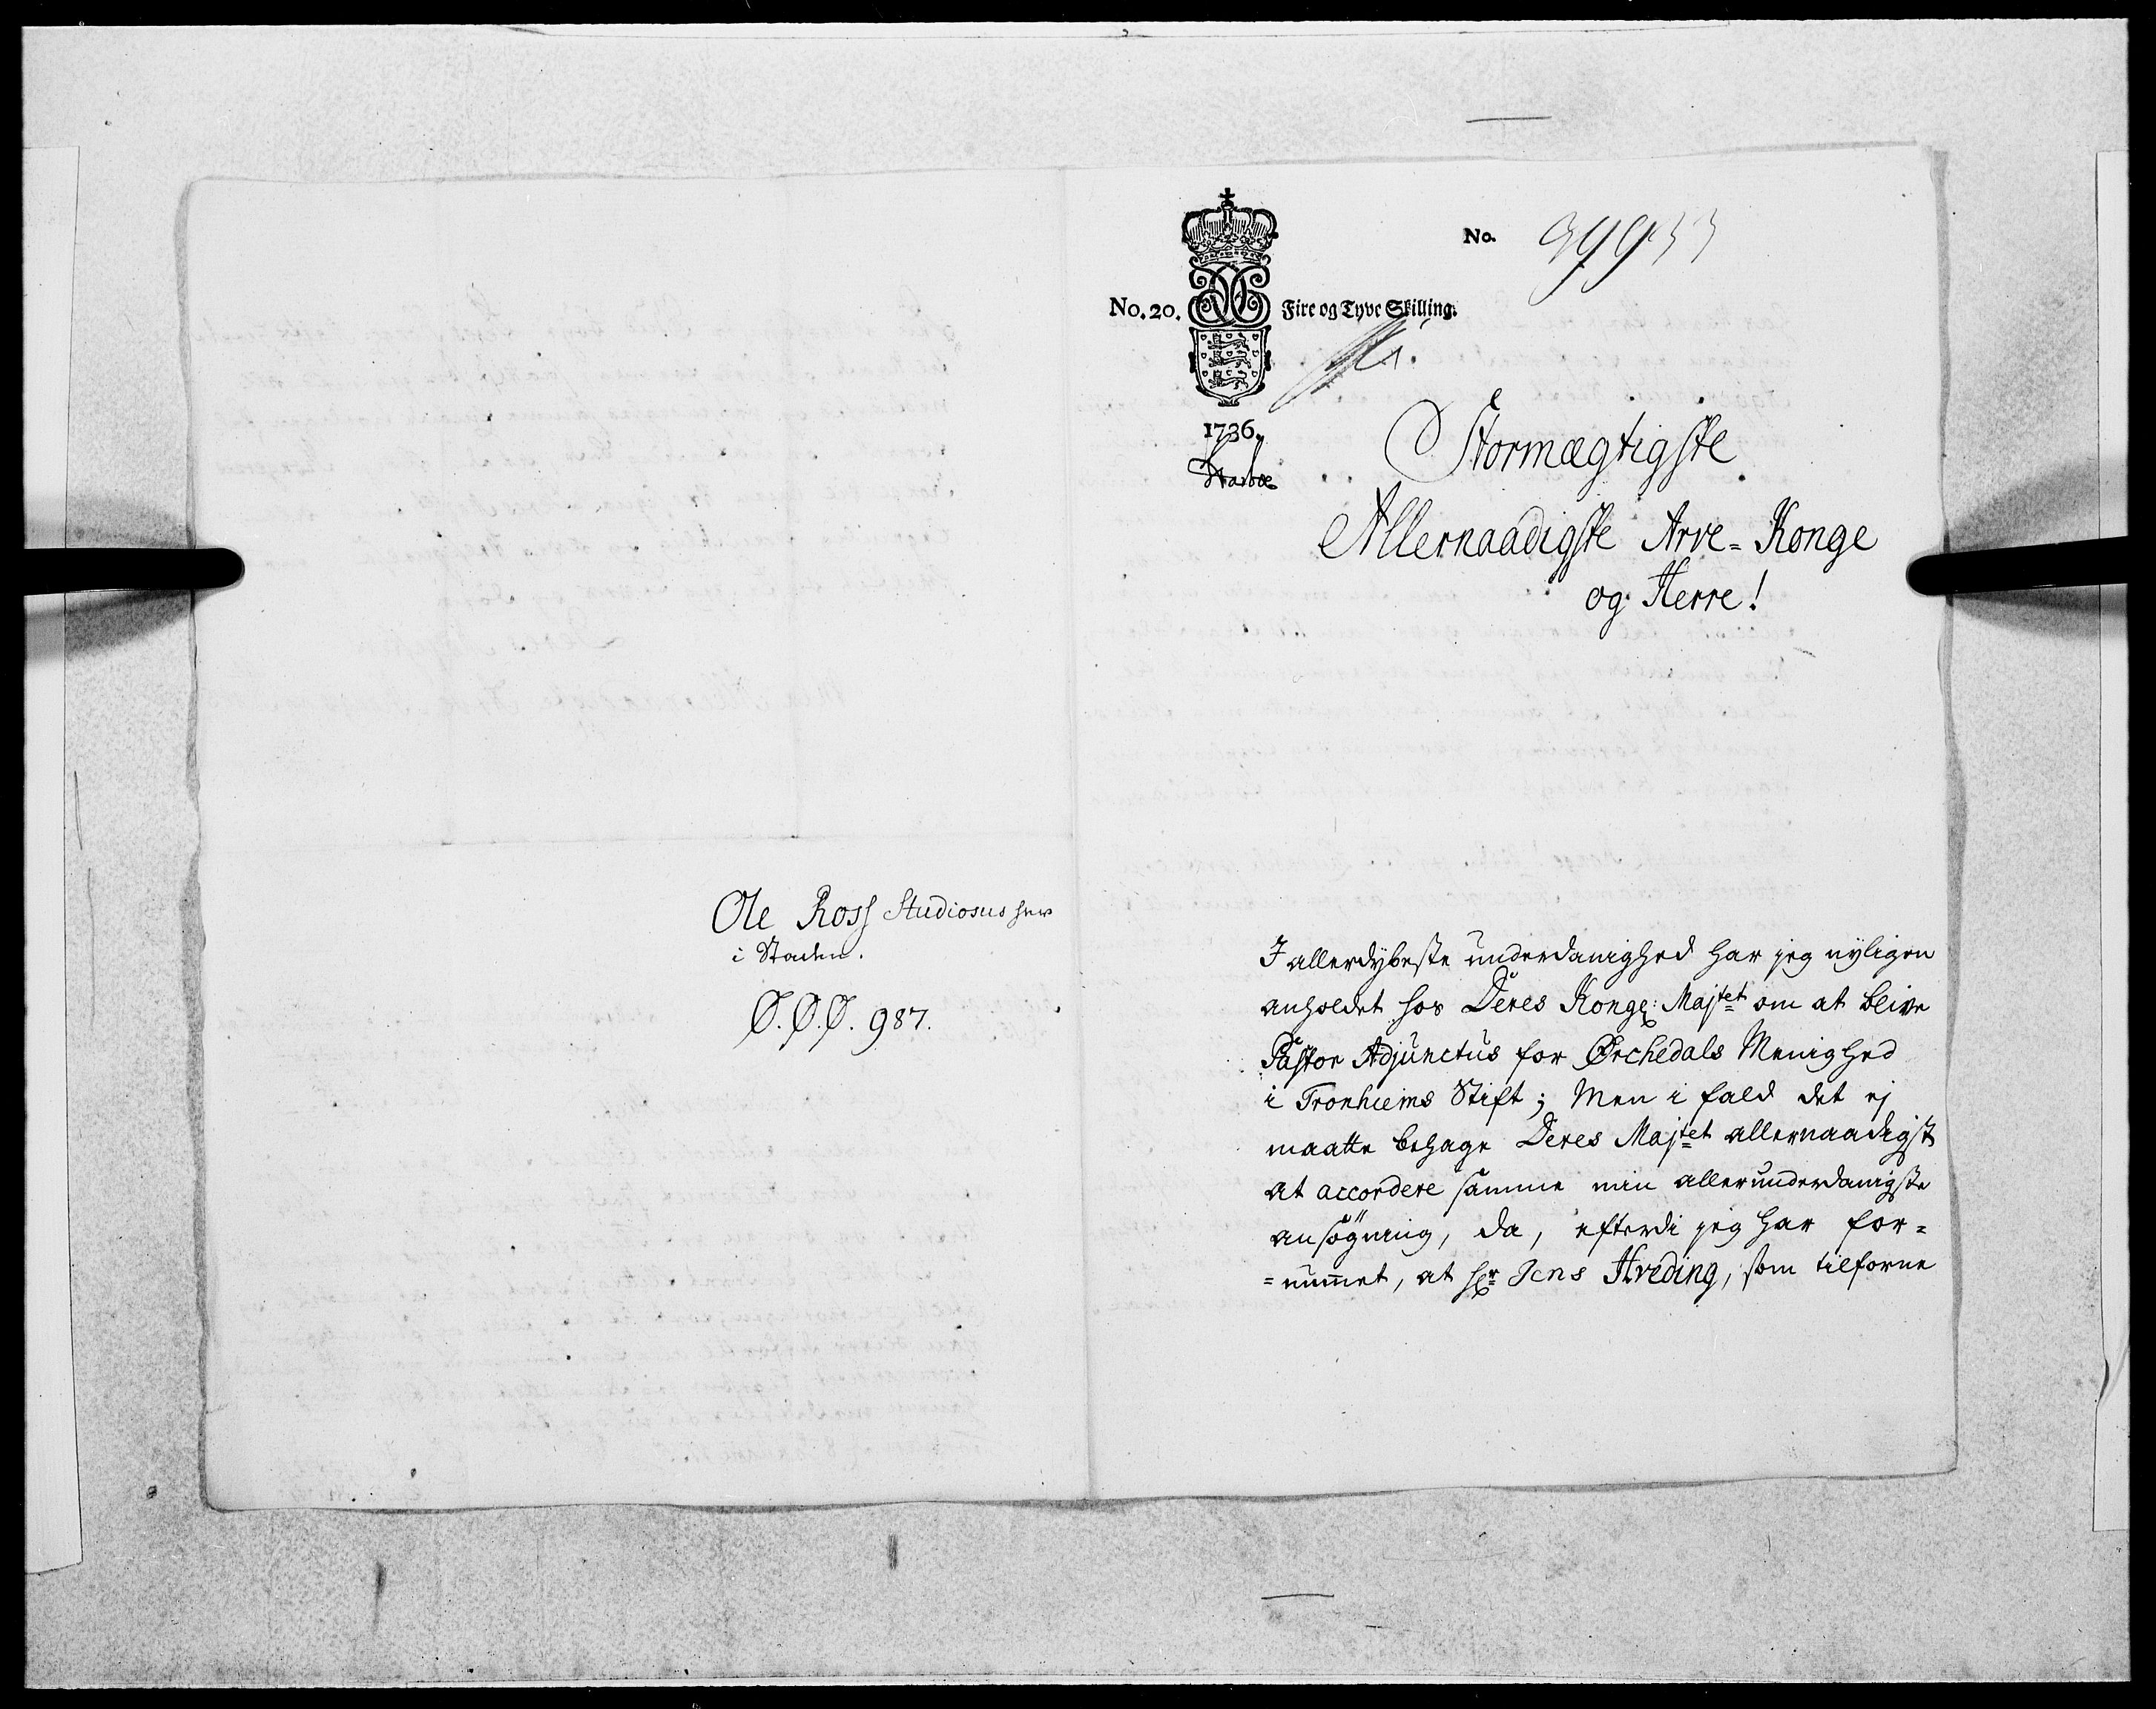 Ole Ross Studiosus her
i Staden.
Ø. Ø. Ø. 987.
No. 39953
No. 20. Fire og Tyve Skilling.
1736.
Stormægtigste
Allernaadigste Arve= Konge
og Herre!
I allerdybeste underdanighed har jeg nyligen
anholdet hos Deres Kongl: Majtet om at blive
Pastor Adjunctus for Ørchedals Menighed
i Tronhiems Stift; Men i fald det ej
maatte behage Deres Majtet allernaadigst
at accordere samme min allerunderdanigste
ansøgning, da, efterdi jeg har for=
=nummet, at Hr Jens Hveding, som tilforne